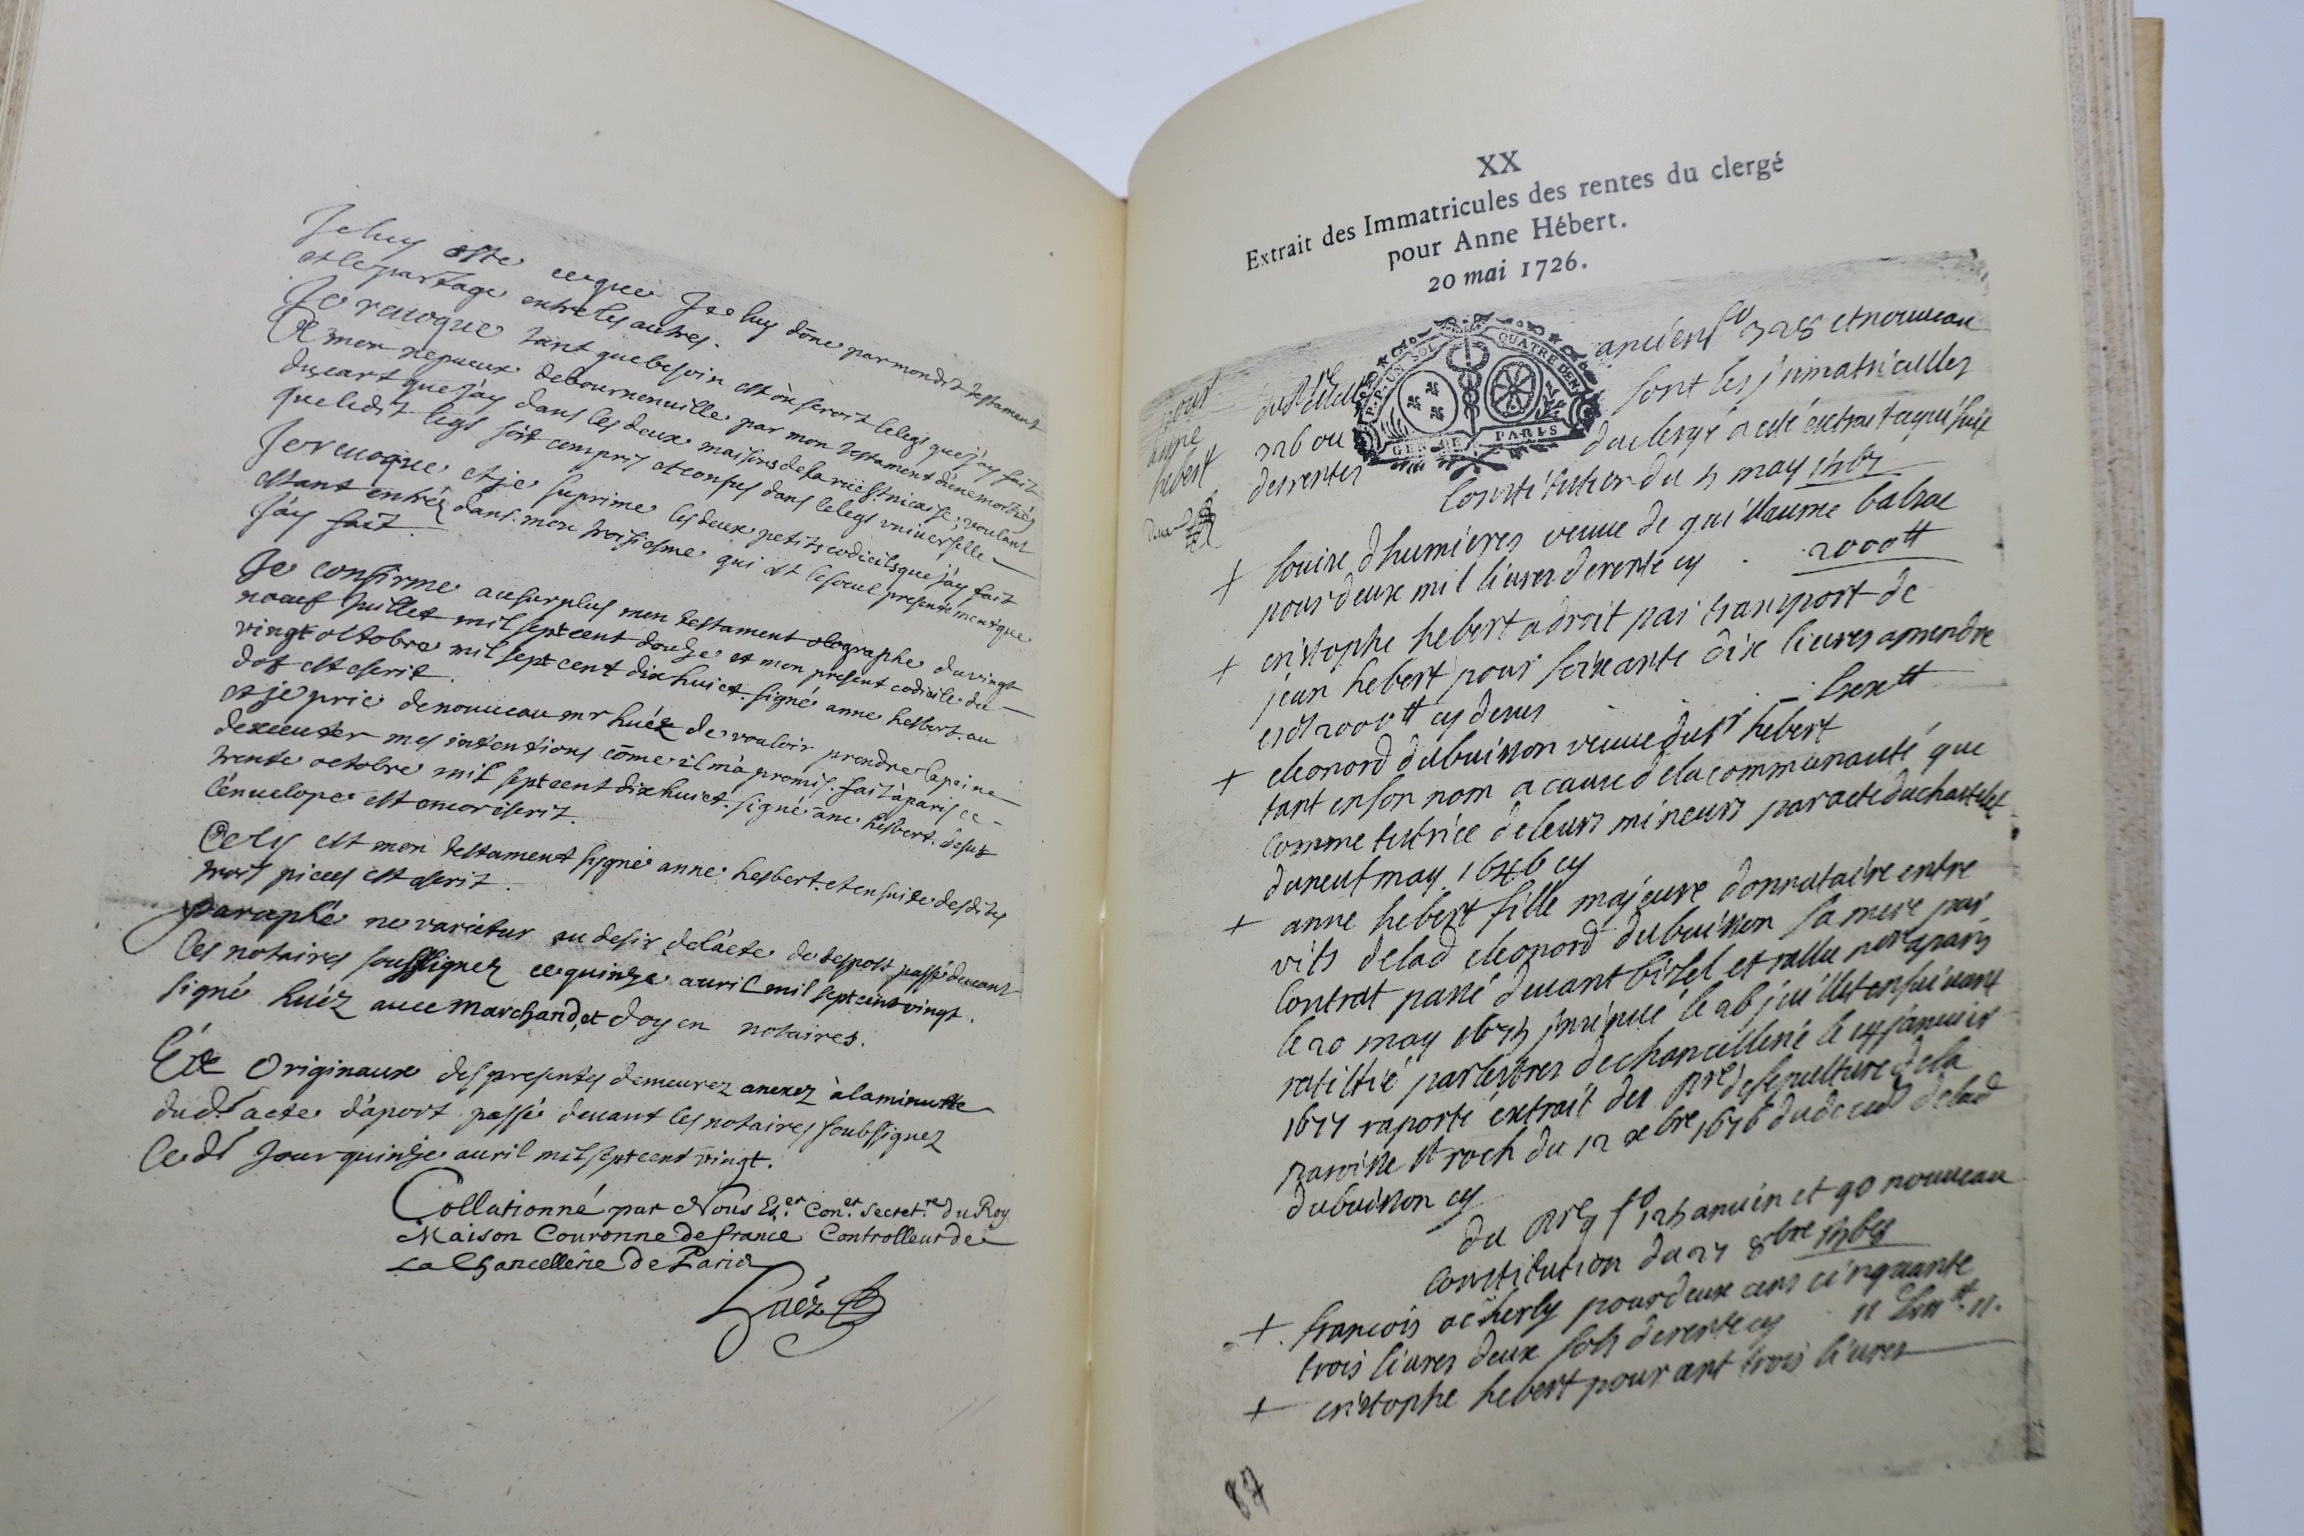 Je luy oste ce que Je luy dône par mondit testament
et le partage entre les autres.
Je revoque tant que besoin est ou seroit le legs que j'ay fait
A mon nepueux debournenuille par mon testament d'une moitiée
du cart que j'ay dans les deux maisons de la rüe St nicaise; voulant
que ledit legs soit compris et confus dans le legs vniverselle
Je reuoque et je suprime les deux petits codiciles que j'ay fait
estant entréz dans mon troisiesme qui est le seul presentement que
j'ay fait.
Je confirme au surplus mon testament olographe du vingt
noeuf Juillet mil sept cent douze et mon present codicile du
vingt octobre mil sept cent dix huict. signé anne hesbert. au
dos est escrit.
et je prie de nouueau mr huéz de vouloir prendre la peine
dexecuter mes intentions côme il m'a promis. fait à paris ce
trente octobre mil sept cent dix huict. signé âne hesbert. desus
l'enuelope est encor escrit.
Cecy est mon testament signé anne hesbert. et en suite desdites
trois pieces est escrit.
paraphé ne varietur au desir de l'acte de depost passé deuant
les notaires soussignez ce quinze auril mil sept cent vingt.
signé huéz auec Marchand, et doyen notaires.
Originaux des presentes demeurez anexez à la minutte
dud.t acte d'aport passé deuant les notaires soubsignez
Ledt Jour quinze auril mil sept cent vingt.
Collationné par Nous Es.er Con.er Secret.re du Roy
Maison Couronne de france Controlleur de
La Chancellerie de Paris
Huéz
XX
Extrait des Immatricules des rentes du clergé
pour Anne Hébert.
20 mai 1726.
P.P. UN SOL QUATRE DEN.
GEN. DE PARIS
pour
anne
hebert
ancien fo 328 et nouueau
326 ou sont les jmmatriculles
des rentes du clergé a esté extrait ce qui suit
Constitution du 5 may
+ louise dhumieres veuue de guillaume balzac
pour deux mil liures de rente cy 2000tt
+ cristophe hebert a droit par transport de
jean hebert pour soixante dix liures a prendre
esd 2000tt cy deues lxxtt
+ eleonord dubuisson veuue du sr hebert
tant en son nom a cause de la communauté que
comme tutrice de leurs mineurs par acte du chastelet
du neuf may 1646 cy
+ anne hebert fille majeure donnataire entre
vifs de lad eleonord dubuisson sa mere par
Contrat passé deuant et rallu nore a paris
le 20 may jnsinué le 26 juillet ensuiuant
ratiffié par lettres de chancellerie le janvier
1677 raporté éxtrait des de sepulture de la
paroisse st roch du 12 xbre 1676 du deced de lad
dubuisson cy
du fo 125 ancien et 90 nouueau
Constitution du 27 8bre
+ francois acherly pour deux cens cinquante
trois liures deux sols de rente cy
+ cristophe hebert pour cent trois liures
87